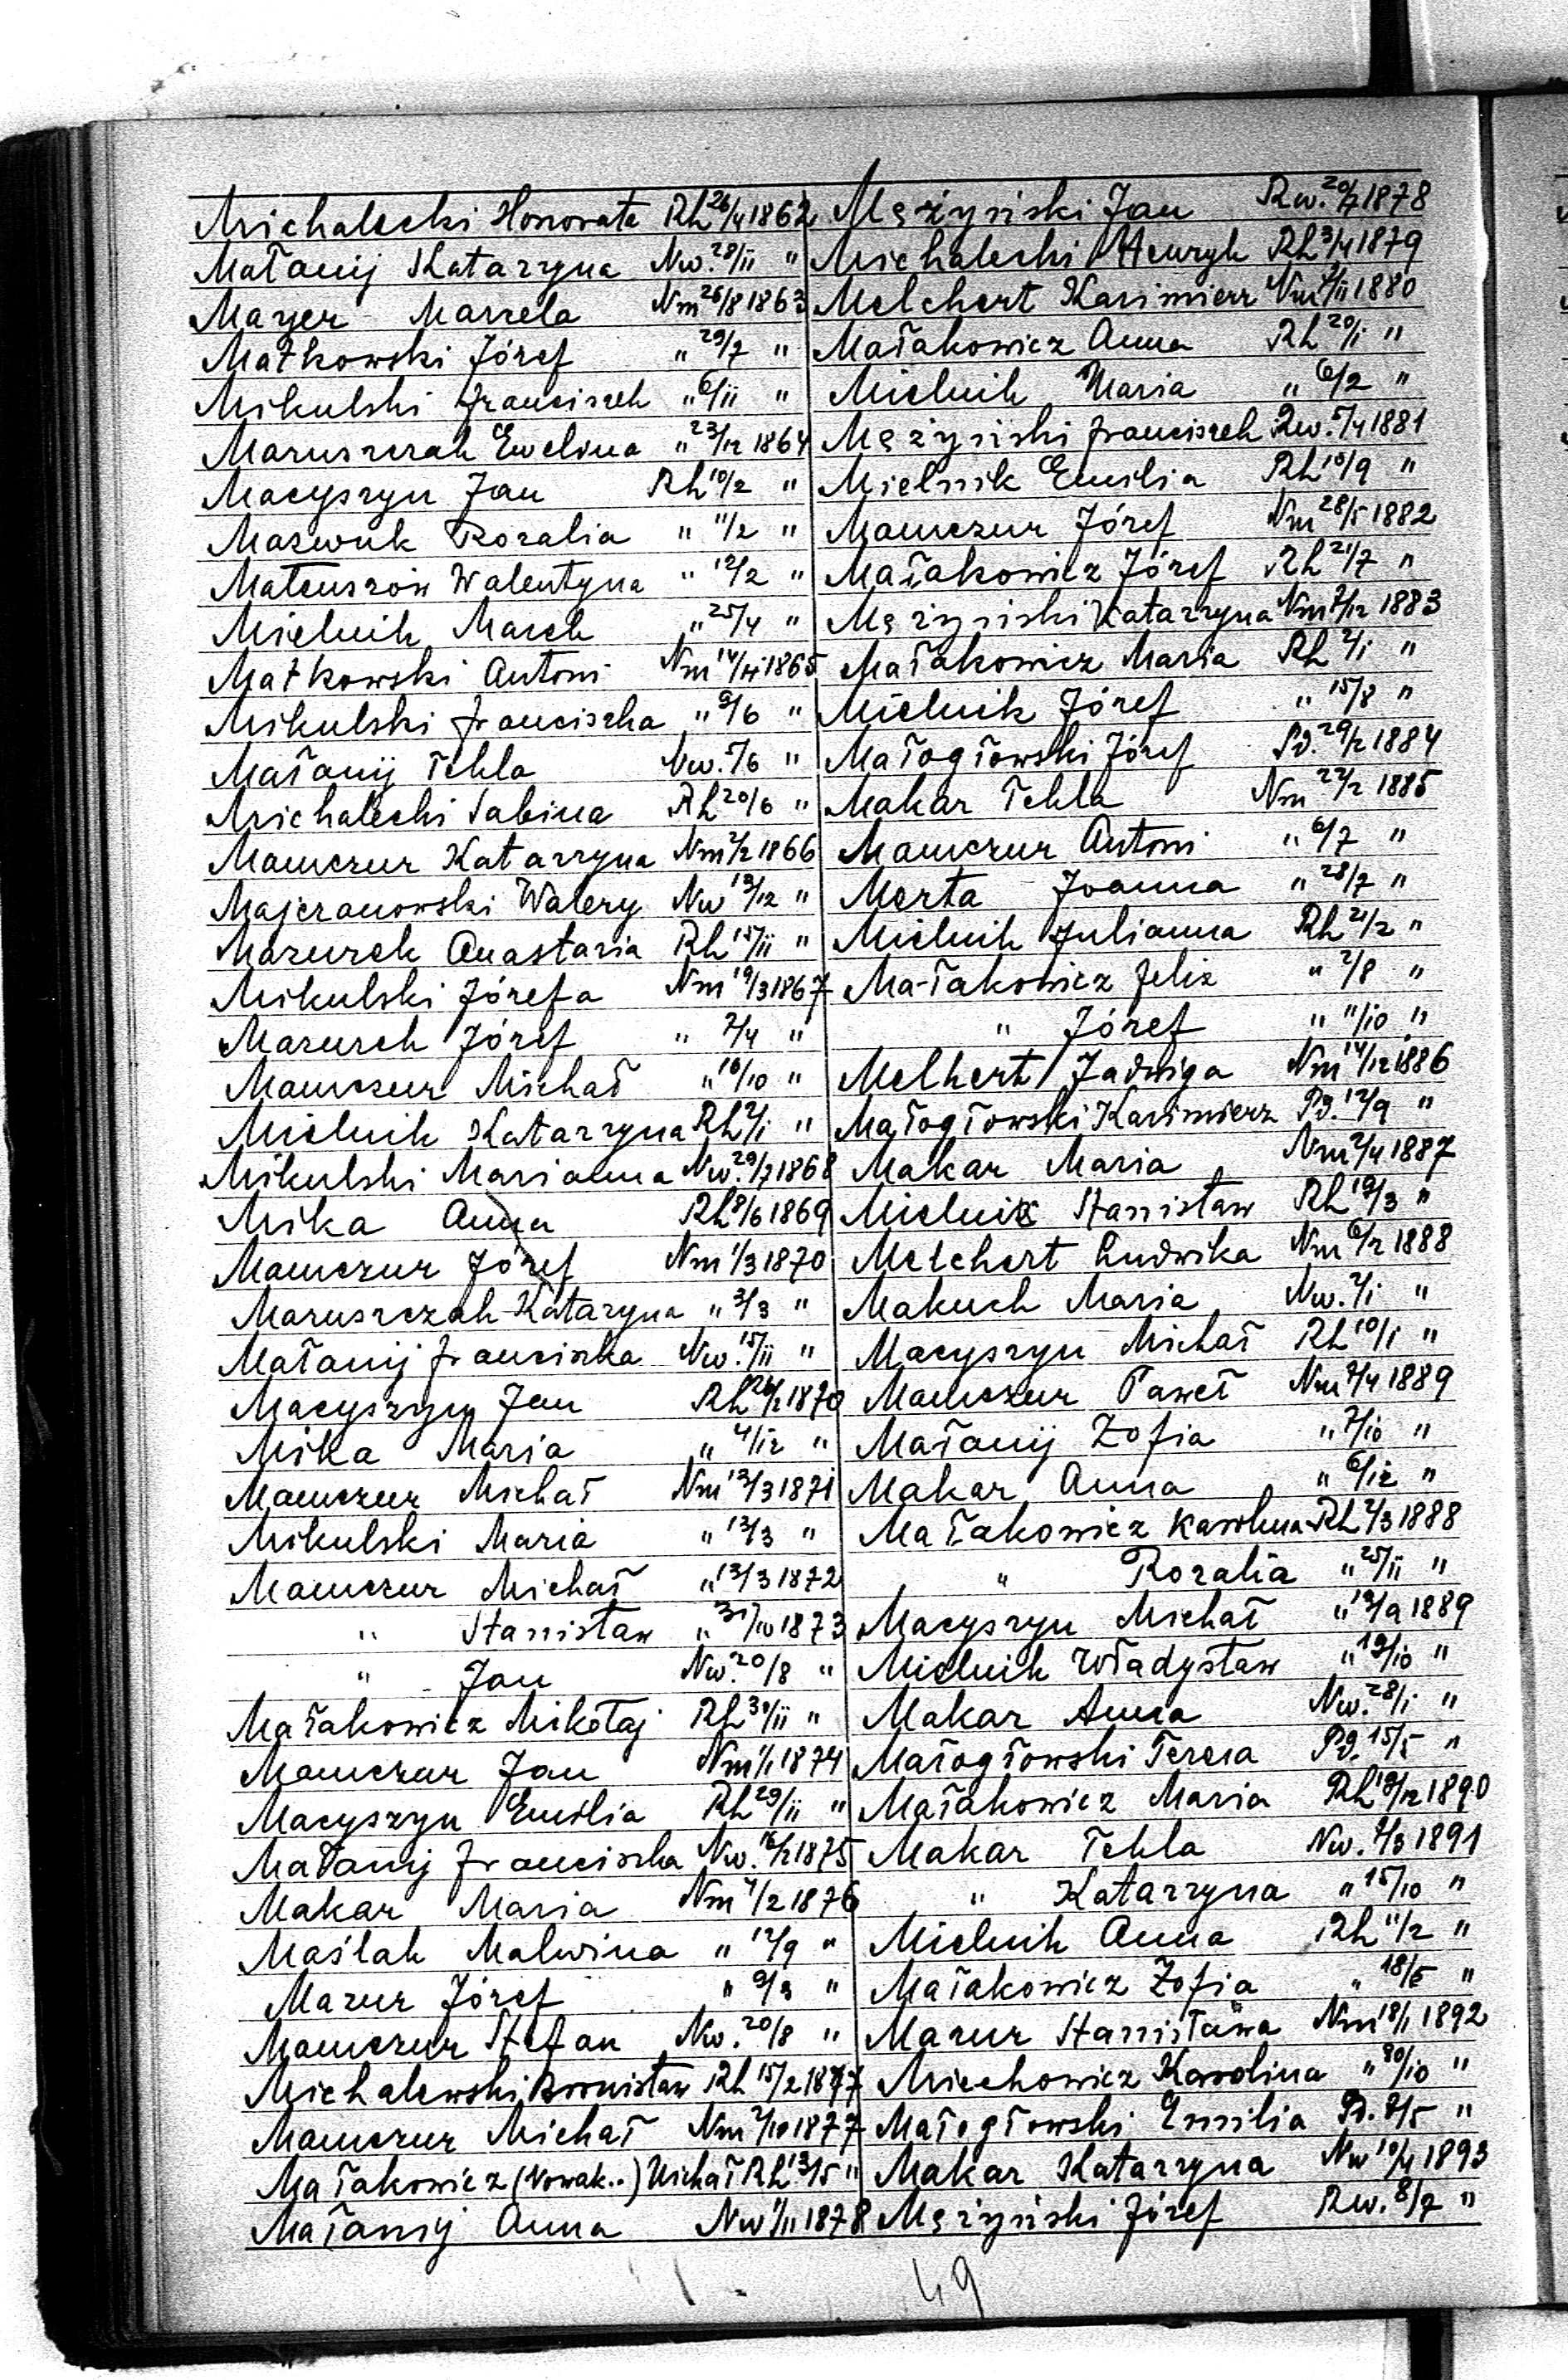 Michalecki Honorata Rh 26/4 1862
Małanij Katarzyna Nw. 28/11 "
Mayer Marcela Nm 26/8 1863
Małkowski Józef " 29/7 "
Mikulski Franciszek " 6/11 "
Maruszczak Ewelina " 23/12 1864
Macyszyn Jan Rh 10/2 "
Maszwuk Rozalia " 11/2 "
Mateuszów Walentyna " 12/2 "
Mielnik Marek " 25/4 "
Małkowski Antoni Nm 14/11 1865
Mikulski Franciszka " 9/6 "
Małanij Tekla Nw. 5/6 "
Michalecki Sabina Rh 20/6 "
Mamczur Katarzyna Nm 2/2 1866
Majeranowski Walery Nw 13/12 "
Mazurek Anastazia Rh 15/11 "
Mikulski Józefa Nm 19/3 1867
Mazurek Józef " 7/4 "
Mamczur Michał " 16/10 "
Mielnik Katarzyna Rh 2/1 "
Mikulski Marianna Nw. 29/7 1868
Mika Anna Rh 8/6 1869
Mamczur Józef Nm 1/3 1870
Maruszczak Katarzyna " 3/3 "
Małanij Franciszka Nw. 15/11 "
Macyszyn Jan Rh 1870
Mika Maria " 4/12 "
Mamczur Michał Nm 12/3 1871
Mikulski Maria " 12/3 "
Mamczur Michał " 13/3 1872
" Stanisław " 31/10 1873
" Jan Nw. 20/8 "
Małakowicz Mikołaj Rh 30/11 "
Mamczur Jan Nm 1/1 1874
Macyszyn Emilia Rh 29/11 "
Małanij Franciszka Nw. 16/2 1875
Makar Maria Nm 4/2 1876
Maślak Malwina " 12/9 "
Mazur Józef " 9/9 "
Mamczur Stefan Nw. 20/8 "
Michalewski Bronisław Rh 15/2 1877
Mamczur Michał Nm 2/10 1877
Małakowicz (Nowak..) Michał Rh 13/5 "
Małanij Anna Nw 1/11 1878
Mężyński Jan Rw. 20/7 1878
Michalecki Henryk Rh 3/4 1879
Melchert Kazimierz Nm 1880
Małakowicz Anna Rh 20/1 "
Mielnik Maria " 6/2 "
Mężyński Franciszek Rw. 5/4 1881
Mielnik Emilia Rh 10/9 "
Mamczur Józef Nm 28/5 1882
Małakowicz Józef Rh 21/7 "
Mężyński Katarzyna Nm 2/12 1883
Małakowicz Maria Rh 2/1 "
Mielnik Józef " 15/8 "
Małogłowski Józef Pd. 29/2 1884
Makar Tekla Nm 22/2 1885
Mamczur Antoni " 6/7 "
Merta Joanna " 28/7 "
Mielnik Julianna Rh 21/2 "
Małakowicz Felix " 2/8 "
" Józef " 11/10 "
Melhert Jadwiga Nm 14/12 1886
Małogłowski Kazimierz Pd. 12/9 "
Makar Maria Nm 2/4 1887
Mielnik Stanisław Rh 19/3 "
Melchert Ludwika Nm 6/2 1888
Makuch Maria Nw. 2/1 "
Macyszyn Michał Rh 10/1 "
Mamczur Paweł Nm 2/4 1889
Małanij Zofia " 7/10 "
Makar Anna " 6/12 "
Małakowicz Karolina Rh 2/3 1888
" Rozalia " 25/11 "
Macyszyn Michał " 19/9 1889
Mielnik Władysław " 19/10 "
Makar Anna Nw. 28/1 "
Małogłowski Teresa Pd. 15/5 "
Małakowicz Maria Rh 19/12 1890
Makar Tekla Nw. 1/3 1891
" Katarzyna " 15/10 "
Mielnik Anna Rh 11/2 "
Małakowicz Zofia " 18/5 "
Mazur Stanisława Nm 18/1 1892
Miechowicz Karolina " 30/10 "
Małogłowski Emilia Pd. 8/5 "
Makar Katarzyna Nw 10/4 1893
Mężyński Józef Rw. 8/7 "
49